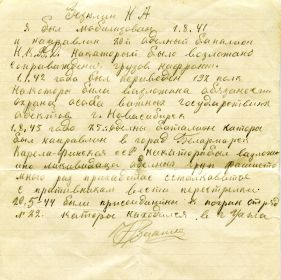 Н А
Я был мобилизован 1.8.41
и направлен 20й отделный баталион
Н.К.В.Д. На каторый было возложено
Сопровождения грузов на фронт
1.1.42 года был переведен 192 полк
На каторый была возложена обязаности
охрана особа важных государствиных
обектов г. Новосибирск
1.8.43 года 25 отделны баталион каторы
был направлен в город
Карела-Финская ССР на каторый был возложе
много раз приходилас сталкиватса
с противникам вести перестрелки
20.5.44 были присоединины к погран отряд
№ 22. каторые находился в г. Ухта